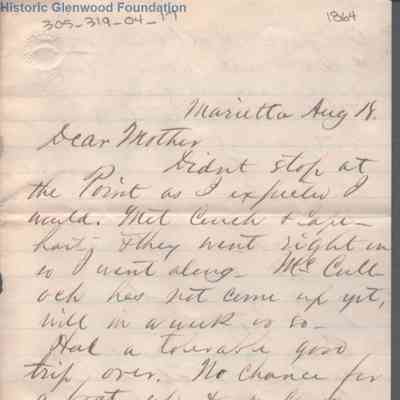 Historic Glenwood Foundation
305-319-04-17
1864
Marietta Aug 18.
Dear Mother
Didnt stop at
the Point as I expected I
would. Met Couch &
& they went right on
so I went along - McCull-
och has not come up yet,
will in a week or so -
Had a tolerable good
trip over. No chance for